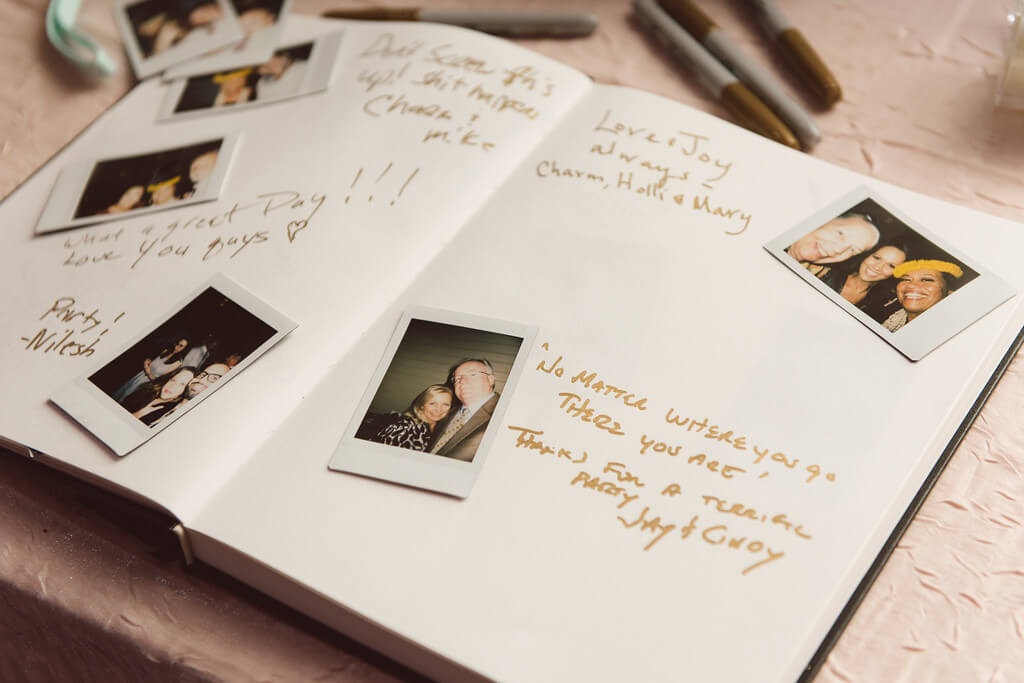 up! shit happens
Charm &
mike
What a great Day!!!
Love you guys ♡
Party!
-Nilesh
Love & Joy
always -
Charm, Holli & Mary
"No MATTER WHERE YOU GO
THERE YOU ARE,"
THANKS FOR A TERRIFIC
PARTY
JAY & CINDY